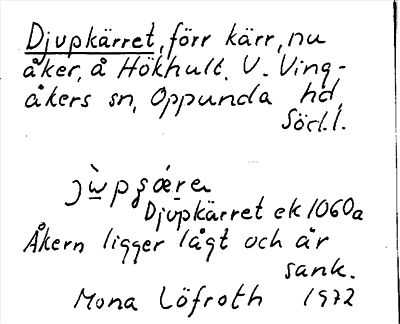 Djupkärret, förr kärr, nu
åker, å Hökhult. V. Ving-
åkers sn, Oppunda hd,
Södl.
jùpʂæ̀ra
Djupkärret ek 1060a
Åkern ligger lågt och är
sank.
Mona Löfroth 1972